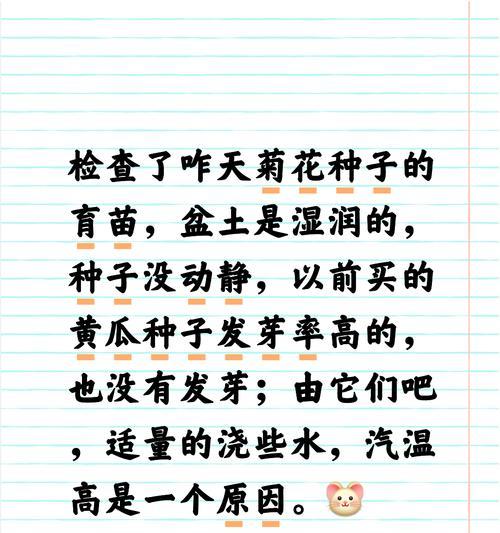 检查了咋天菊花种子的
育苗，盆土是湿润的，
种子没动静，以前买的
黄瓜种子发芽率高的，
也没有发芽；由它们吧
，适量的浇些水，汽温
高是一个原因。🐭